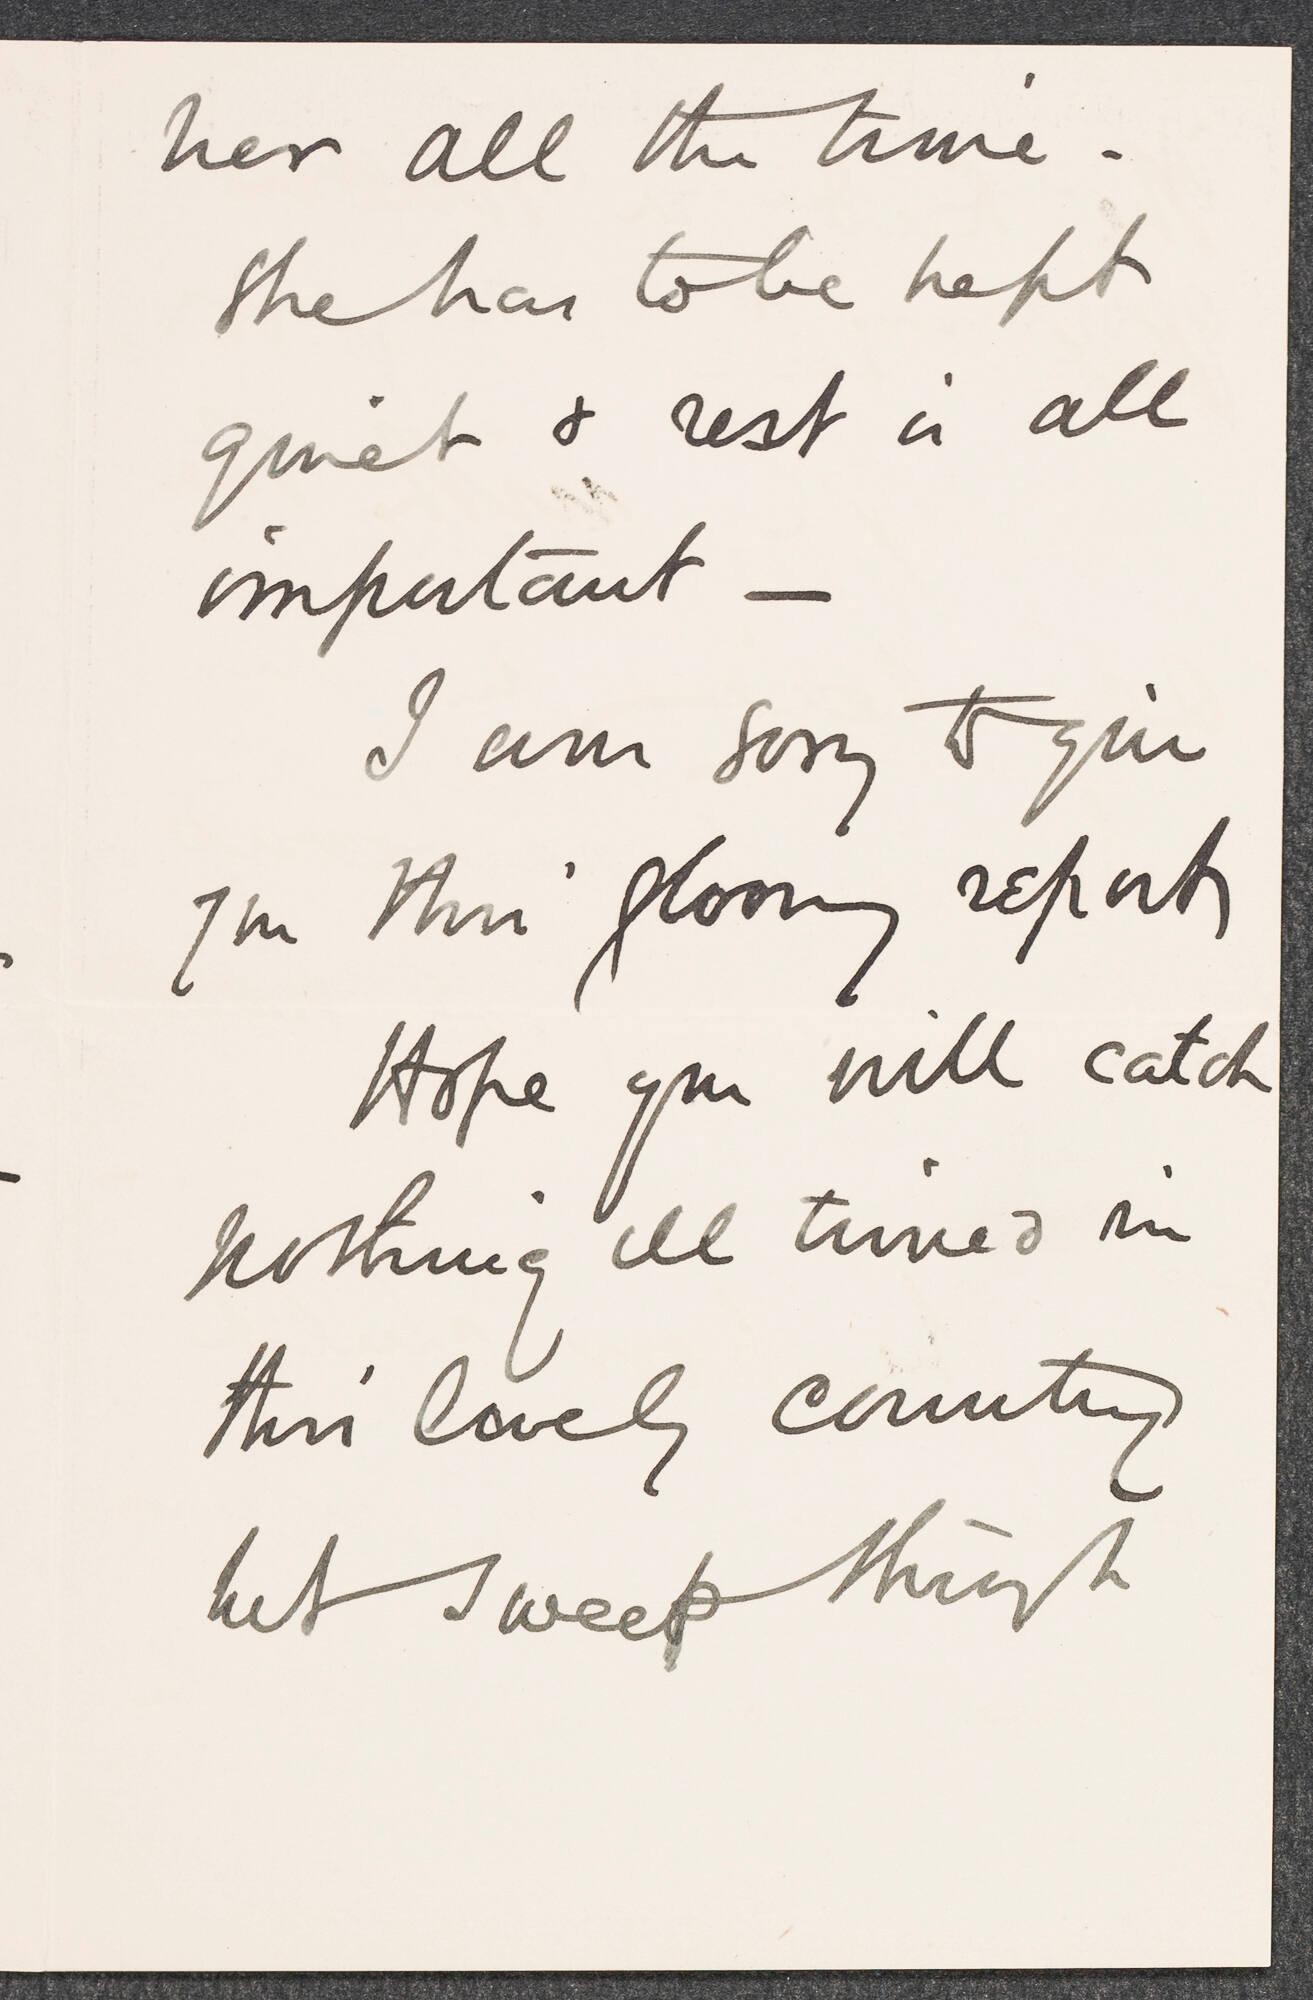 her all the time.
She has to be kept
quiet & rest is all
important —
I am sorry to give
you this gloomy report
Hope you will catch
nothing ill timed in
this lovely country
but sweep through